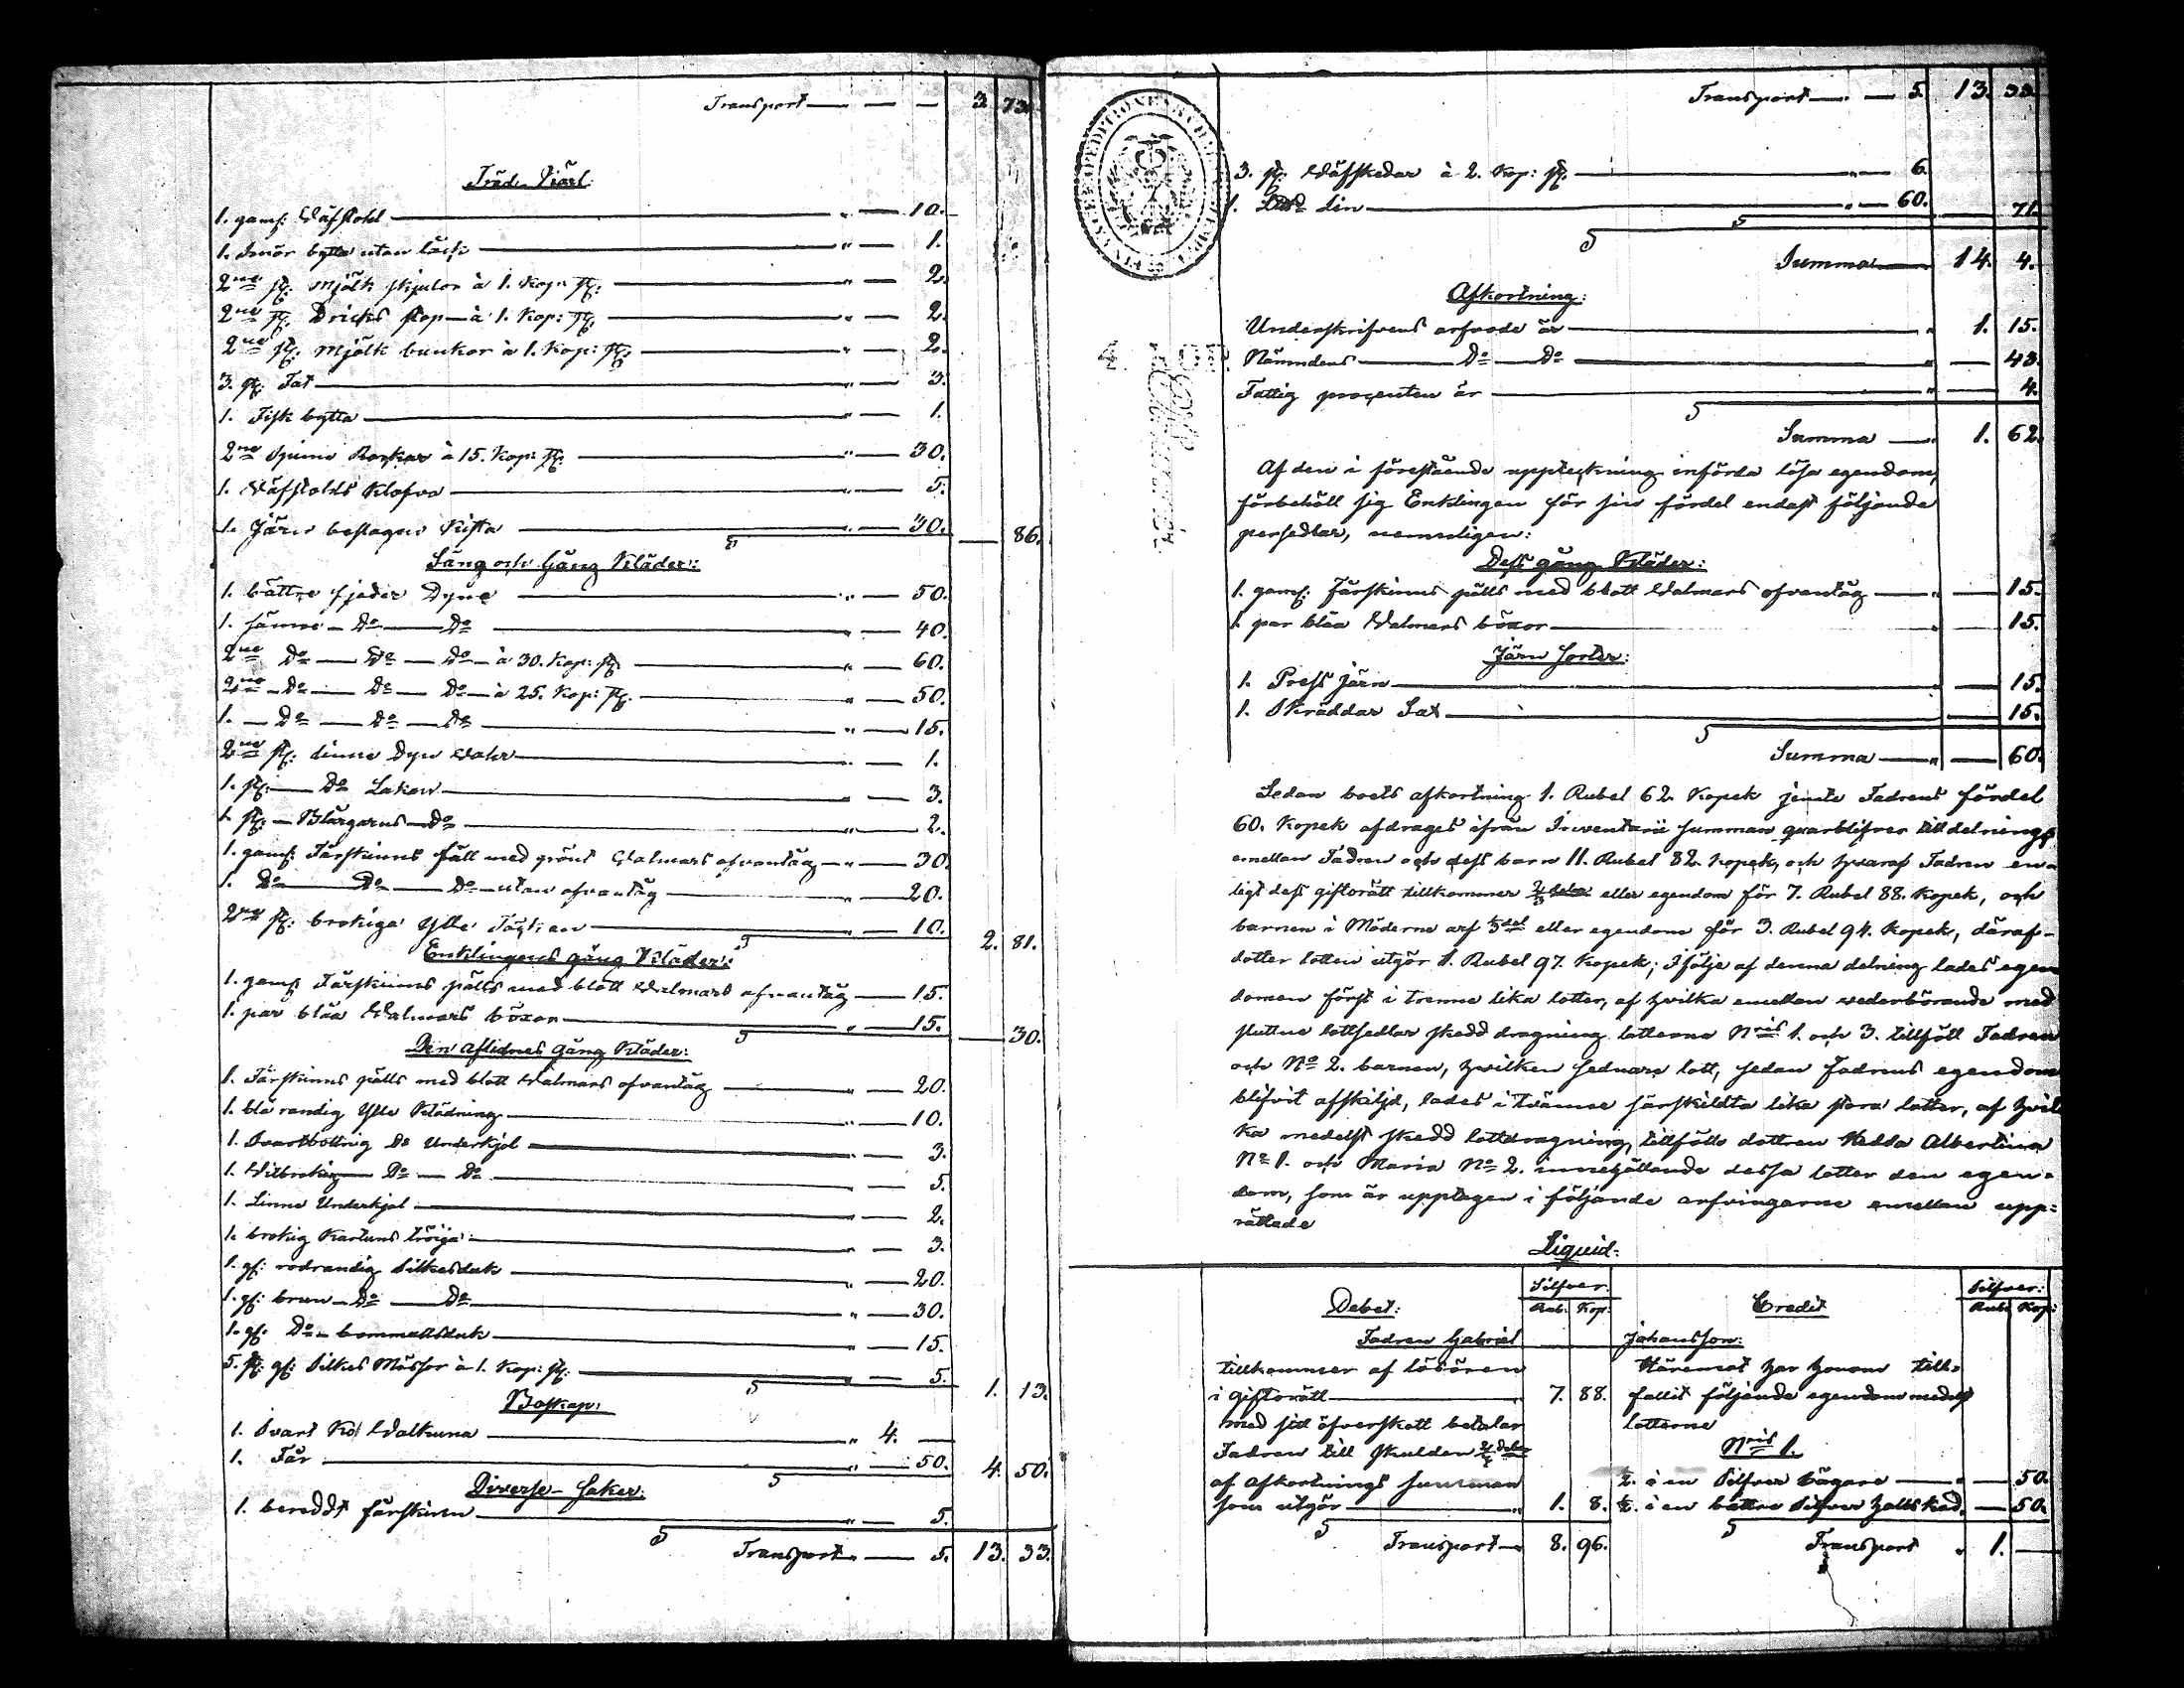 Transport — — — 3. 73.
Träd Kärl
1. gam: Wäfstohl — " — 10.
1. Smör bytta utan låck — " — 1.
2ne st: mjölk skjulor à 1. Kop: st: — " — 2.
2ne st: Dricks stop — à 1. Kop: st: — " — 2.
2ne st: mjölk bunkor à 1. Kop: st: — " — 2.
3. st: Fat — " — 3.
1. Fisk bytta — " — 1.
2ne Spinn Rockar à 15. Kop: st: — " — 30.
1. Wäfstolds Klofva — " — 5.
1. Järn beslagen Kista — " — 30. — 86.
Säng och Gång Kläder:
1. bättre fjäder Dyna — " — 50.
1. sämre — Do — Do — " — 40.
2ne Do — Do — Do — à 30. Kop: st: — " — 60.
2ne — Do — Do — Do — à 25. Kop: st: — " — 50.
1. — Do — Do — Do — " — 15.
2ne st: linne Dyn wahr — " — 1.
1. st: — Do Lakan — " — 3.
1. st: — Blårgarns — Do — " — 2.
1. gam: Fårskinns fäll med grönt Walmars ofvantåg — " — 30.
1. Do — Do — Do — utan ofvantåg — 20.
2ne st: brokiga Ylle Täcken — " — 10. 2. 81.
Enklingens gång Kläder:
1. gam: Fårskinns pälls med blått Walmars ofvantåg — 15.
1. par blåa Walmars böxor — " — 15. — 30.
Den aflidnes Gång Kläder:
1. Fårskinns pälls med blått Walmars ofvantåg — " — 20.
1. blå randig Ylle Klädning — " — 10.
1. Svartbottnig Do Underkjol — " — 3.
1. Hvitbrokig — Do — Do — 5.
1. Linne Underkjol — " — 2.
1. brokig Kartuns tröija — " — 3.
1. gl: rödrandig Silkesduk — " — 20.
1. gl: brun — Do — Do — " — 30.
1. gl: Do — bommullsduk — " — 15.
5. st: gl: Silkes Mössor à 1. Kop: st: — " — 5. 1. 13.
Boskap:
1. Svart Ko Walkuna — " 4. —
1. Får — " — 50. 4. 50.
Diverse — Saker:
1. bereddt fårskinn — " — 5.
Transport — " — 5. 13. 33.
Transport — " — 5. 13. 33.
3. st: Wäfskedar à 2. Kop: st: — " — 6.
1. Lin — " — 60. 71.
Summa — 14. 4.
Afkortning:
Underskrifvens arfvode är — " 1. 15.
Nämndens — Do — Do — " — 43.
Fattig procenten är — " — 4.
Summa — " 1. 62.
Af den i förestående uppteckning införda lösa egendom,
förbehöll sig Enklingen för sin fördel endast följande
persedlar, nemnligen:
Dess gång Kläder:
1. gam: Fårskinns pälls med blått Walmars ofvantåg — " — 15.
1. par blåa Walmars böxor — " — 15.
Järn Sorter:
1. Press järn — " — 15.
1. Skräddar Sax — " — 15.
Summa — " — 60.
Sedan boets afkortning 1. Rubel 62. Kopek jemte Fadrens fördel
60. Kopek afdrages ifrån Inventarii summan qvarblifver till delnings
emellan Fadren och dess barn 11. Rubel 82. Kopek, och hvaraf Fadren en-
ligt dess giftorätt tillkommer 2/3 delar eller egendom för 7. Rubel 88. Kopek, och
barnen i Möderne arf 1/3 del eller egendom för 3. Rubel 94. Kopek, däraf
dotter lotten utgör 1. Rubel 97. Kopek; I följe af denna delning lades egen
domen först i trenne lika lotter, af hvilka emellan vederbörande med
slutne lottsedlar skedd dragning lotterna Nris 1. och 3. tillföll Fadren
och No 2. barnen, hvilken sednare lott, sedan Fadrens egendom
blifvit afskiljd, lades i tvänne särskildta lika stora lotter, af hvil
ka medelst skedd lottdragning, tillfölls dottren Hedda Albertina
No 1. och Maria No 2. innehållande dessa lotter den egen-
dom, som är upptagen i följande arfvingarne emellan upp-
rättade
Liquid:
Debet: Silfver: Rub: Kop: Credit Silfver: Rub: Kop:
Fadren Gabriel Johansson:
tillkommer af lösören
i Giftorätt — " 7. 88.
med sitt öfverskott betalar
Fadren till skulden 2/3 delar
af afkortnings summan
som utgör — " 1. 8.
Transport — " 8. 96.
Häremot har honom till-
fallit följande egendom medelst
lotterne
Nris 1.
1/2. i en Silfver bägare — " — 50.
1/2. i en bättre Silfver — 50.
Transport " 1. —